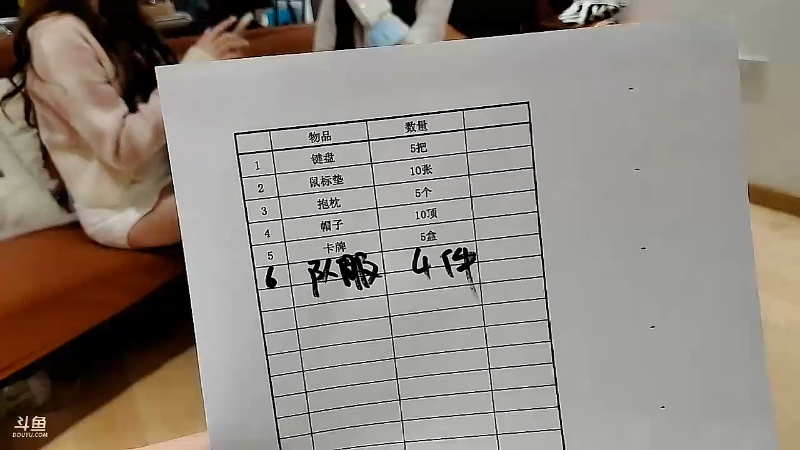 物品 数量
1 键盘 5把
2 鼠标垫 10张
3 抱枕 5个
4 帽子 10顶
5 卡牌 5盒
6 队服 4件
斗鱼
DOUYU.COM